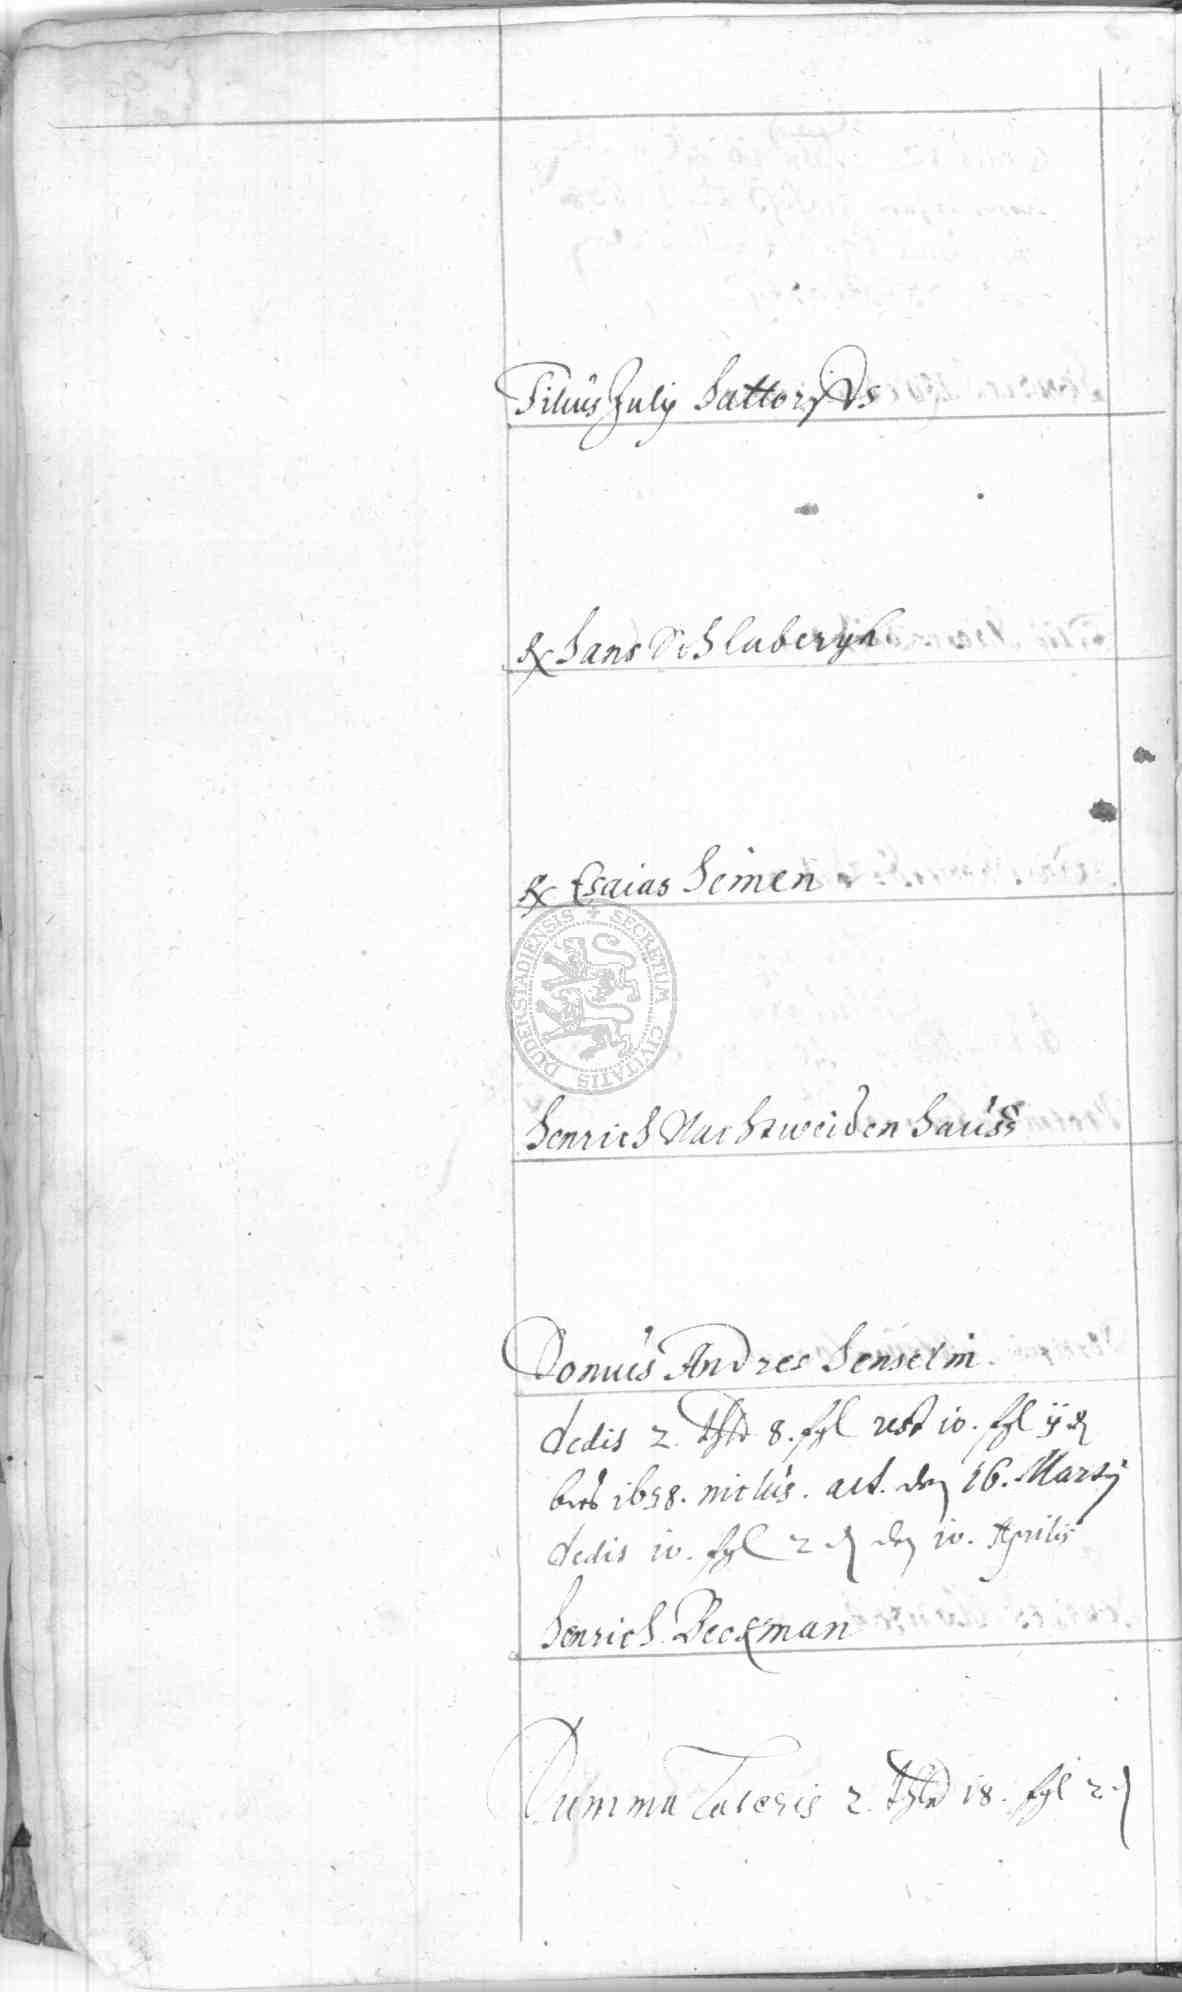 Filius Julij Sattorij
& Hans Schlaberyh
& Esaias Simen
SECRETUM CIVITATIS DUDERSTADIENSIS
Henrich Nachtweiden Hauss
Domus Andres Henselm
dedis 2. thlr 8. ßgl rest io. ßgl ij d
1658. nichts. act. den 16. Martij
dedis io. ßgl 2 d den io. Aprilis
Henrich Beckman
Summa Lateris 2. thlr 18. ßgl 2 d